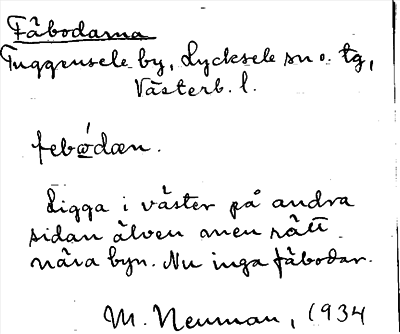 Fäbodarna
Tuggensele by, Lycksele sn o. tg,
Västerb. l.
febødæn.
Ligga i väster på andra
sidan älven men rätt
nära byn. Nu inga fäbodar.
M. Neuman, 1934